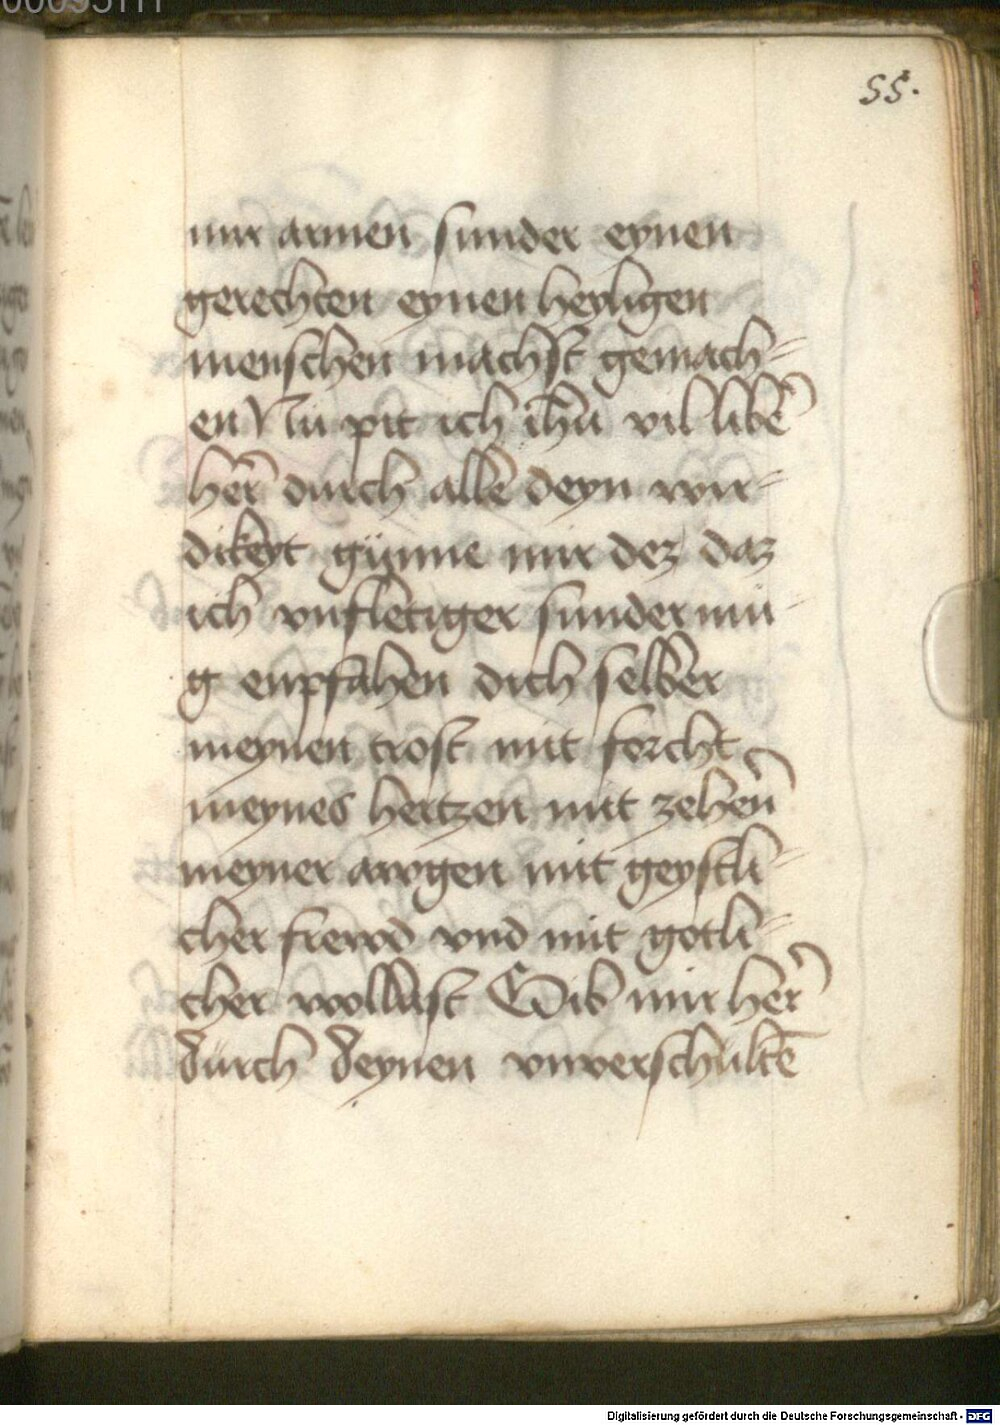 55.
mir armen sunder eynen
gerechten eynen heyligen
menschen machst gemach=
en Nü pit ich ih̄u vil libē
her̄ durch alle deyn wir=
dikeyt günne mir dez daz
ich vnfletiger sunder mü-
g enpfahen dich selber
meynen trost mit forcht
meynes hertzen mit zehern̄
meyner awgen mit geystli=
cher frewd vnd mit gotli=
cher wollust Gib mir her̄
durch deynen vnverschultē
Digitalisierung gefördert durch die Deutsche Forschungsgemeinschaft - DFG